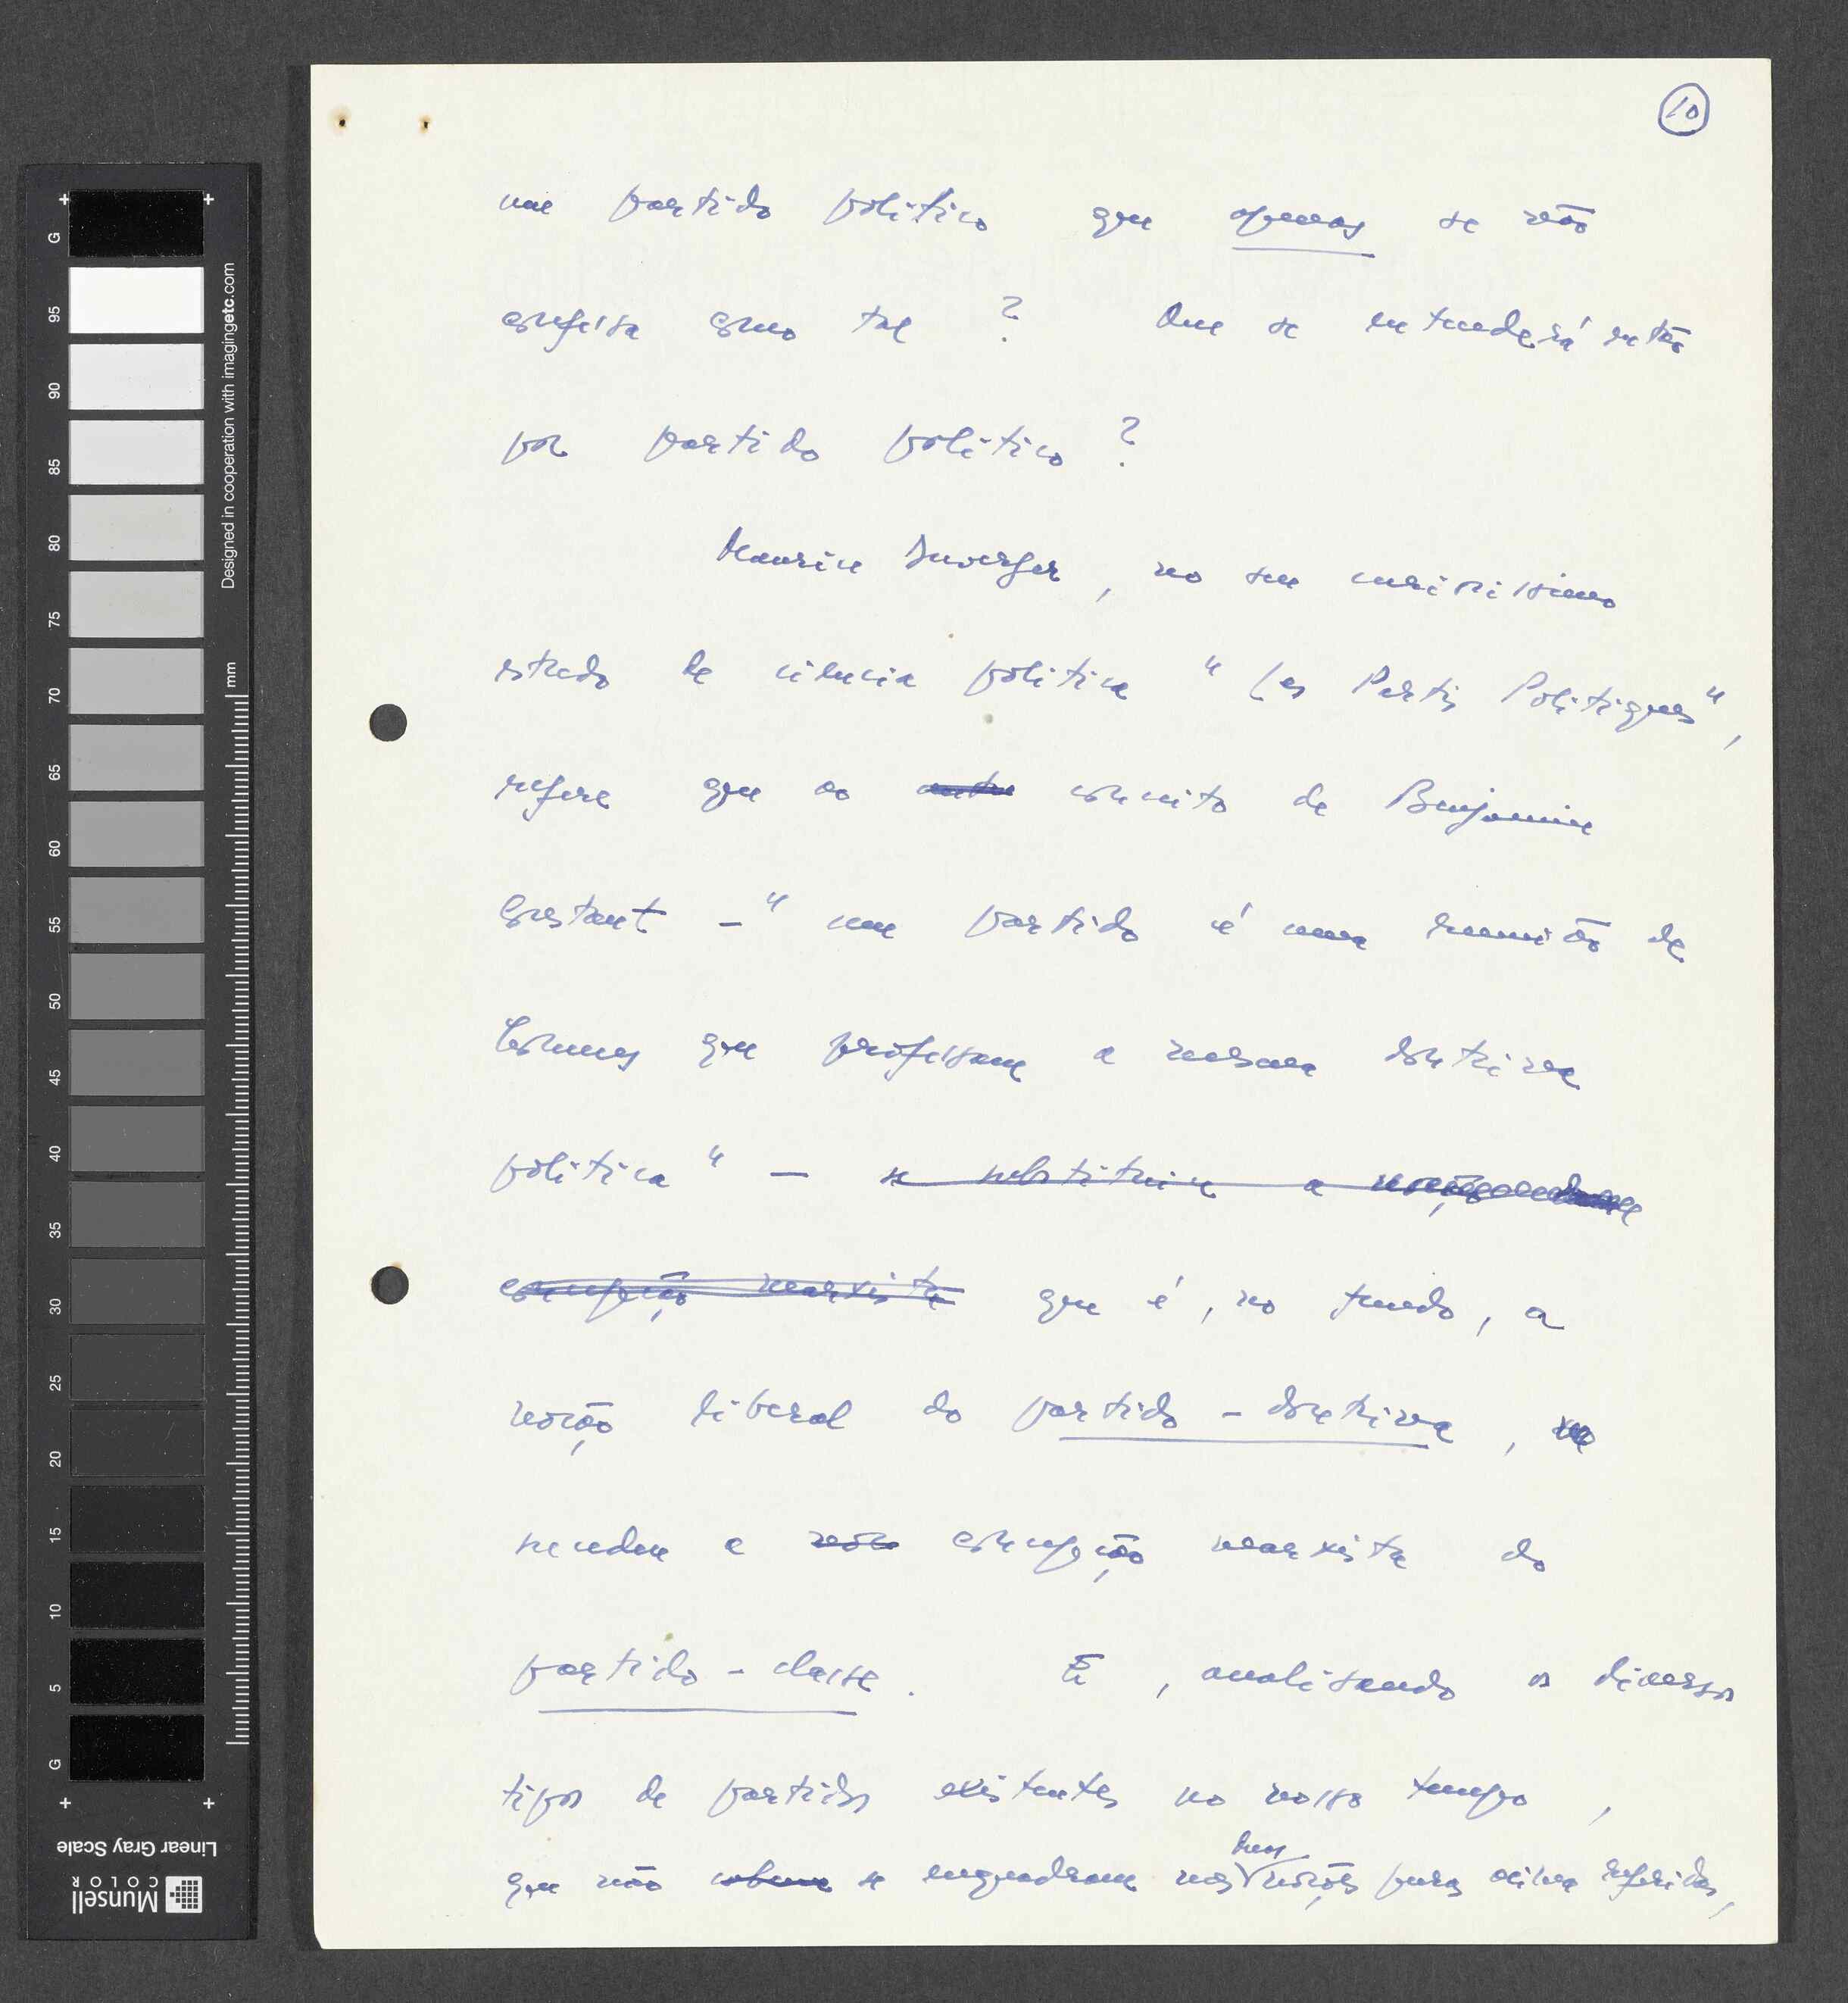 10
um partido político que apenas se não
confessa como tal ? Que se entenderá então
por partido político ?
Maurice Duverger, no seu curiosíssimo
estudo de ciência política "Les Partis Politiques",
refere que ao conceito de Benjamin
Constant - "um partido é uma reunião de
homens que professam a mesma doutrina
política" - se substituiu a
concepção marxista que é, no fundo, a
noção liberal do partido - doutrina,
sucedeu a concepção marxista do
partido - classe. E, analisando os diversos
tipos de partidos existentes no nosso tempo,
que não se enquadram nas duas noções puras acima referidas,
G 95 90 85 80 75 70 65 60 55 50 45 40 35 30 25 20 15 10 5 G
Designed in cooperation with imagingetc.com
mm
Linear Gray Scale
Munsell
COLOR